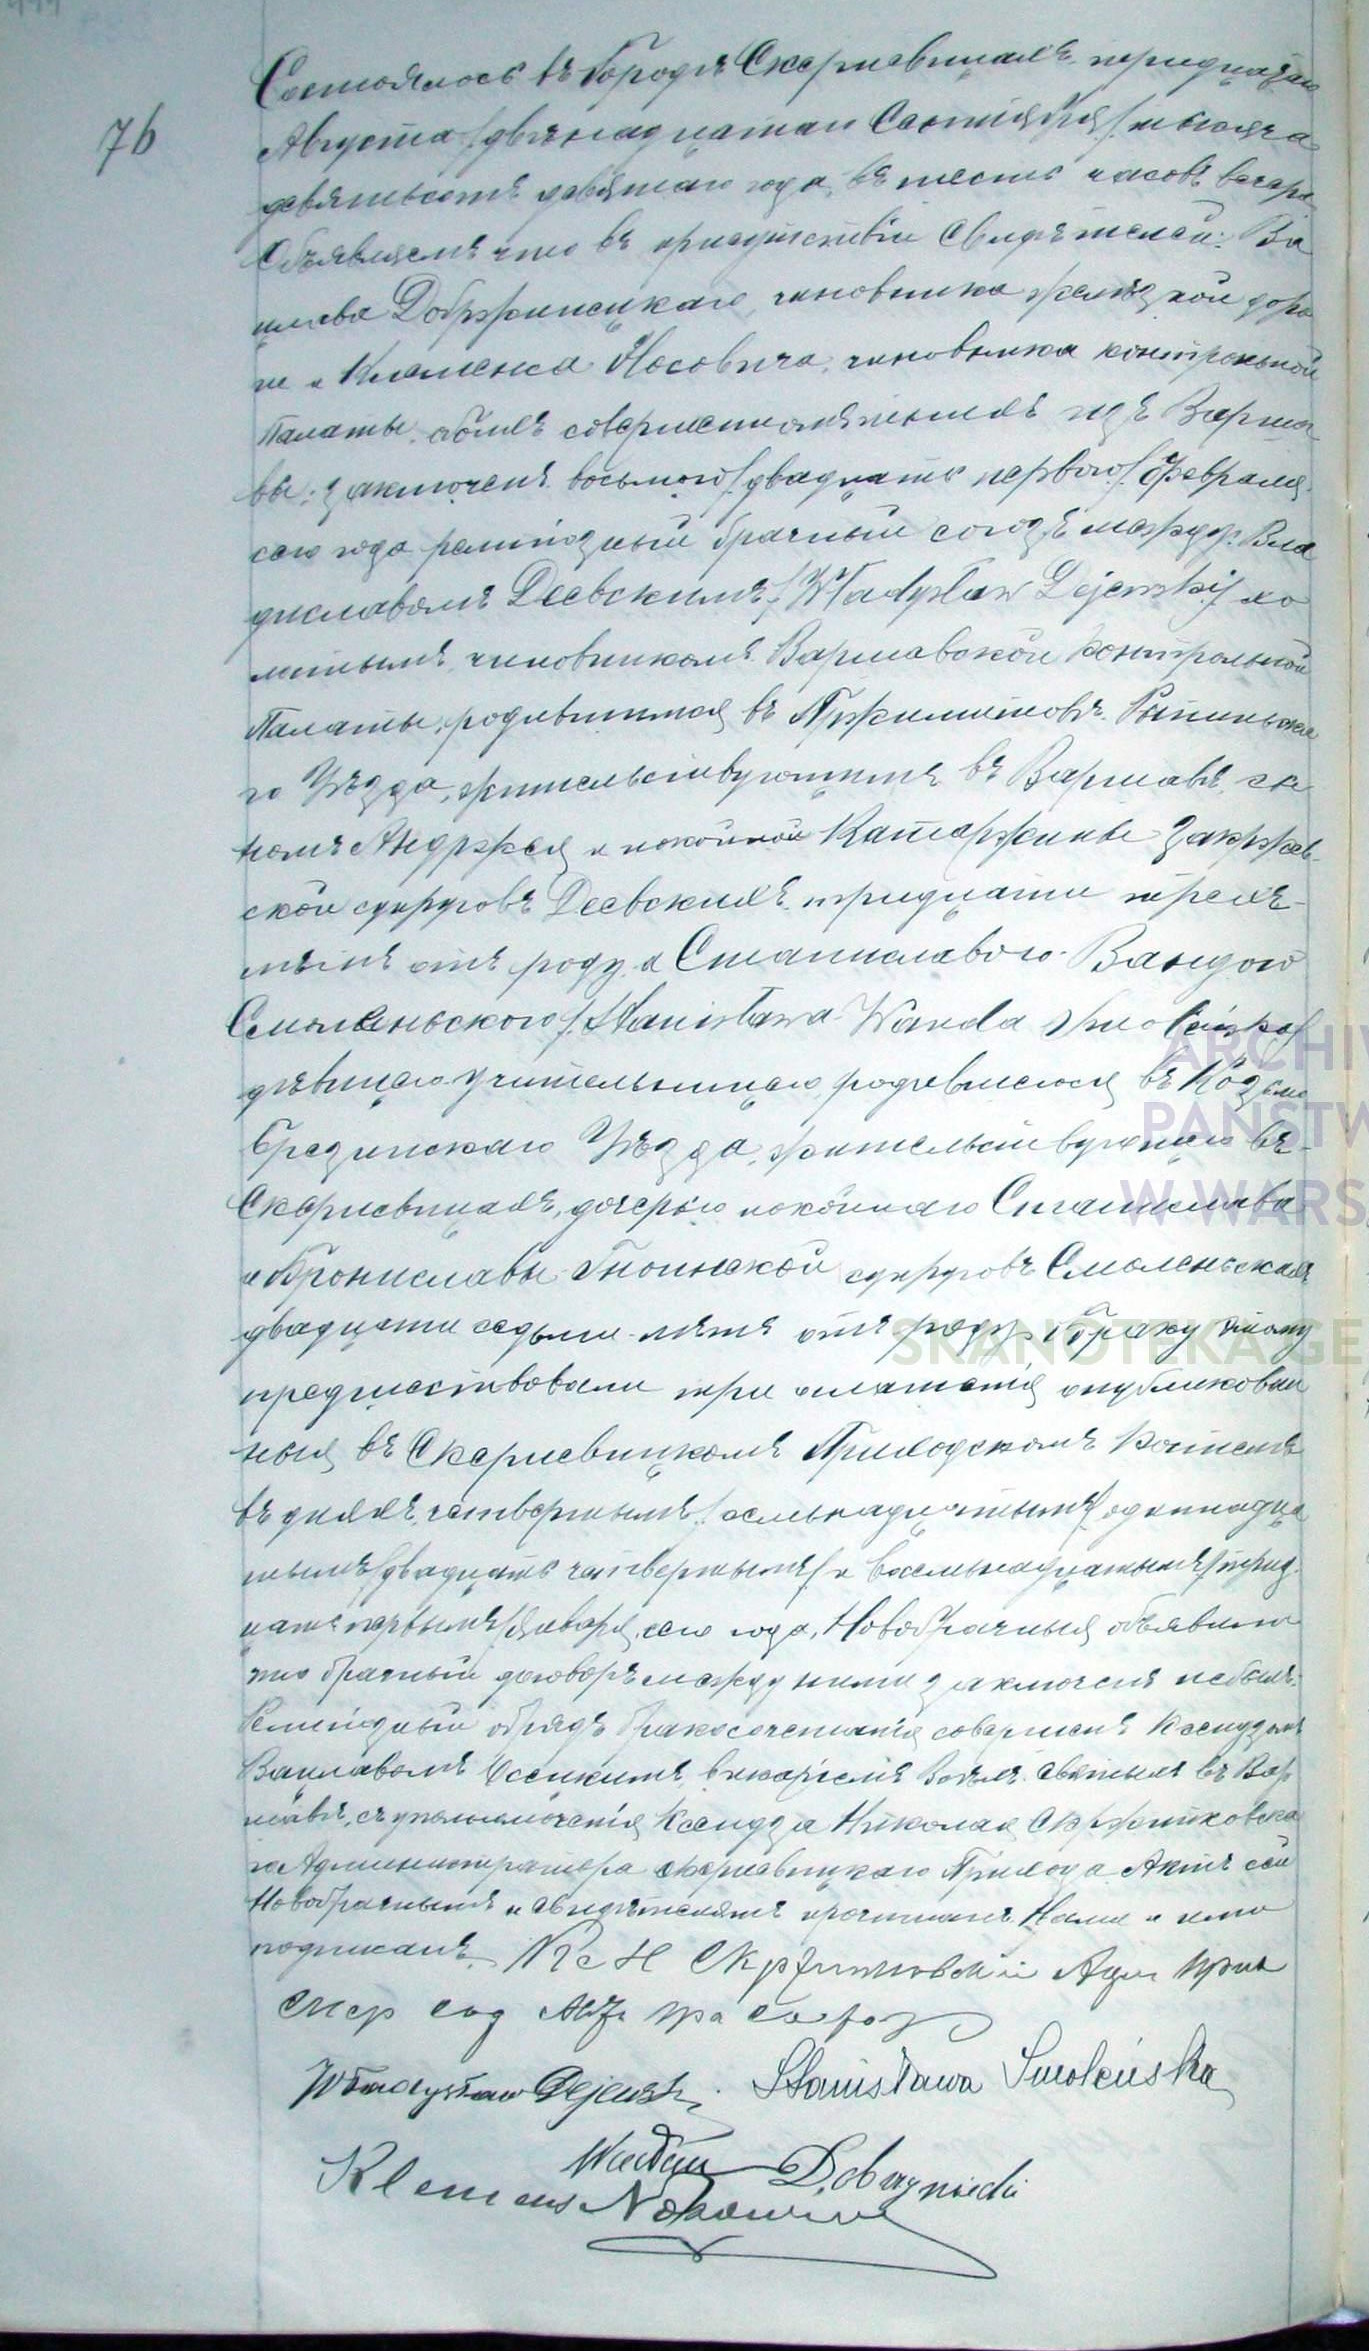 76
Состоялось въ Городѣ Скерневицахъ тридцатаго
Августа /двѣнадцатаго Сентября/ тысяча
девятьсотъ девятаго года, въ шесть часовъ вечера
Объявляемъ что въ присутствіи Свидѣтелей: Ва
цлава Добржинецкаго, чиновника желѣзной доро
ги и Клеменса Носовича, чиновника контрольной
Палаты, обоихъ совершеннолѣтнихъ изъ Варша
вы, заключенъ восьмого /двадцать перваго/ Февраля
сего года религіозный брачный союзъ между: Вла
диславомъ Деевскимъ /Władysław Dejewski/ хо
лостымъ, чиновникомъ Варшавской Контрольной
Палаты, родившимся въ Рыпинска
го Уѣзда, жительствующимъ въ Варшавѣ, сы
номъ Андржея и покойной Катаржины Закржев-
ской супруговъ Деевскихъ, тридцати трехъ
лѣтъ отъ роду и Станиславою-Вандою
Смоленьскою /Stanisława Wanda Smoleńska/
дѣвицею учительницею, родившеюся въ
Брезинскаго Уѣзда, жительствующею въ
Скерневицахъ, дочерью покойнаго Станислава
и Брониславы Гноинской супруговъ Смоленьскихъ
двадцати седьми лѣтъ отъ роду. Браку этому
предшествовали три оглашенія опубликован
ныя въ Скерневицкомъ Приходскомъ Костелѣ
въ дняхъ: четвертымъ /семьнадцатымъ/ одиннадца
тымъ /двадцать четвертымъ/ и восемьнадцатымъ /трид
цать первымъ/ Января, сего года, Новобрачныя объявили
что брачный договоръ между ними заключенъ небылъ.
Религіозный обрядъ бракосочетанія совершенъ Ксендзомъ
Вацлавомъ викаріемъ Всѣхъ Святыхъ въ Вар
шавѣ, съ уполномочія Ксендза Николая Скржипковска
го Администратора Скерневицкаго Прихода. Актъ сей
Новобрачнымъ и свидѣтелямъ прочитанъ, Нами и ими
подписанъ. Кс Н Адм прих
Скер сод
Władysław Dejewski. Stanisława Smoleńska
Wacław Dobrzyniecki
Klemens Nosowicz
ARCHIW
PAŃSTW
W WARS
SKANOTEKA GE